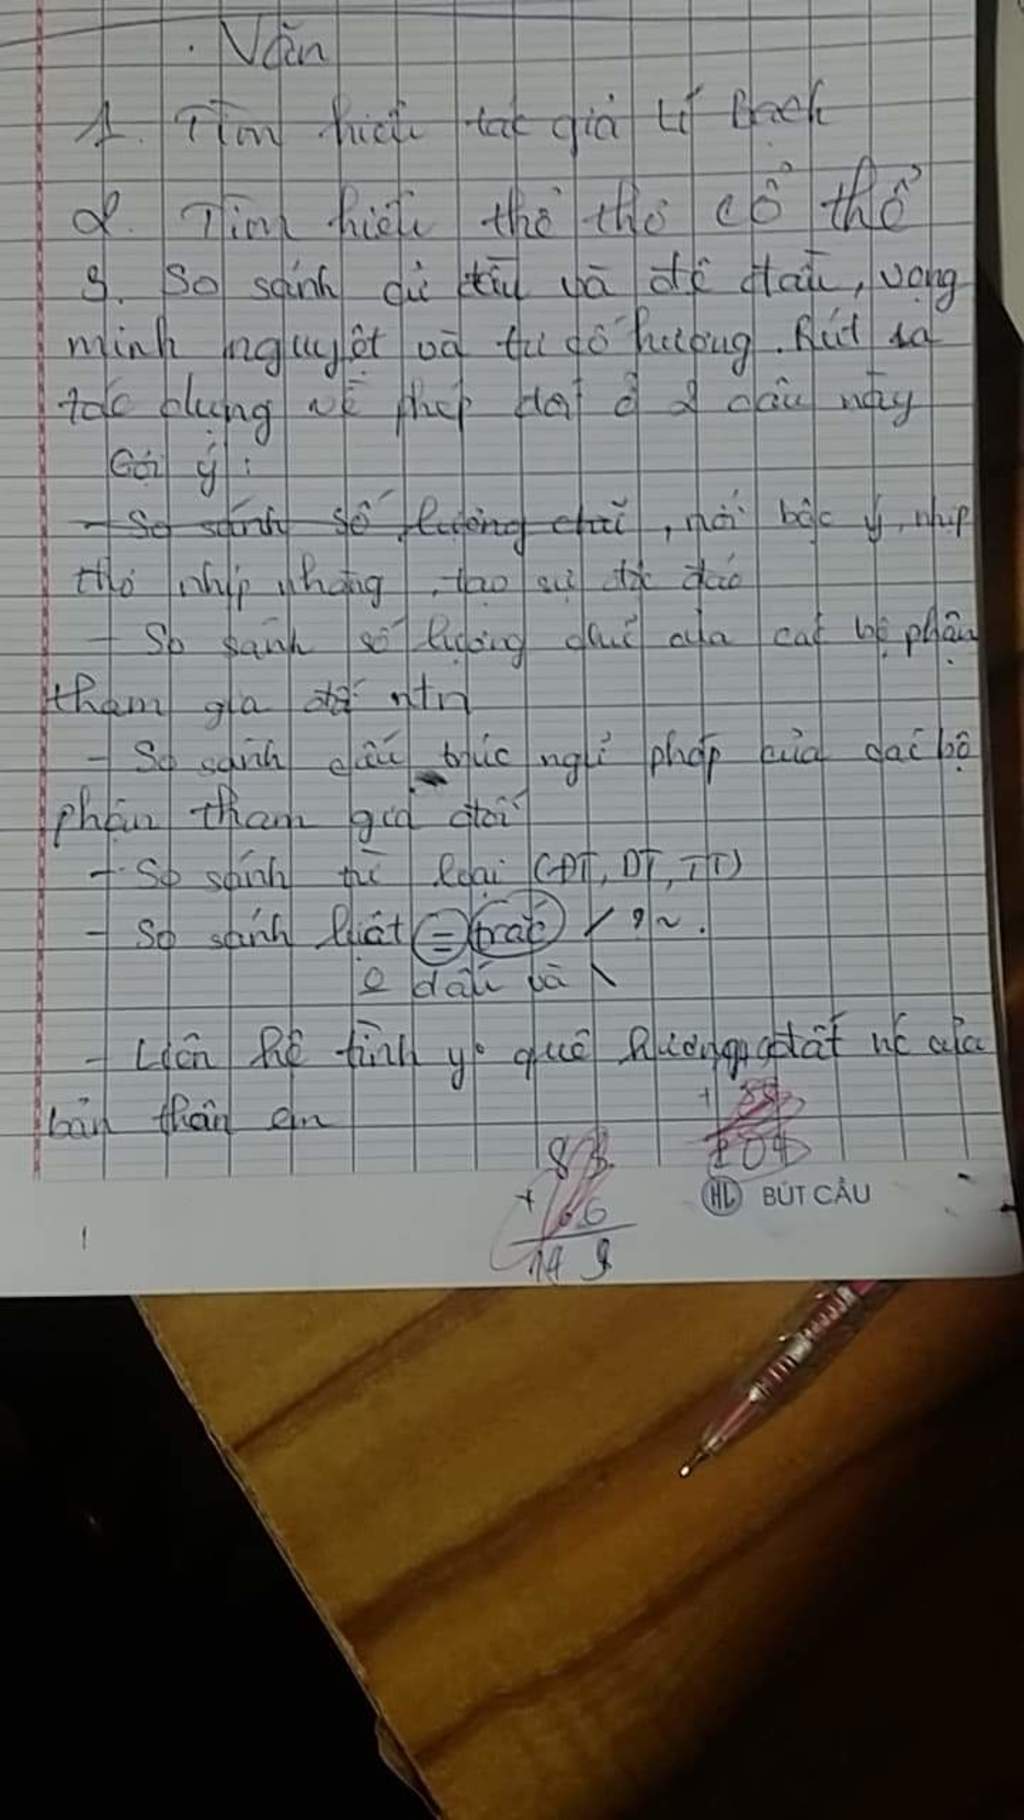 Văn
1. Tìm hiểu tác giả Lí Bạch
2. Tìm hiểu thể thơ cổ thể
3. So sánh cử đầu và đê đầu, vọng
minh nguyệt và tư cố hương. Rút ra
tác dụng về phép đối ở 2 câu này
Gợi ý:
- So sánh số lượng chữ, nổi bậc ý, nhịp
thơ nhịp nhàng, tạo sự độc đáo
- So sánh số lượng chữ của các bộ phận
tham gia đối ntn
- So sánh cấu trúc ngữ pháp của các bộ
phận tham gia đối
- So sánh từ loại (ĐT, DT, TT)
- So sánh luật = trắc / ? ~ .
0 dấu và \
- Liên hệ tình y quê hương, đất nc của
bản thân em
+ 
204
83
+ 66
149
HL BÚT CÂU